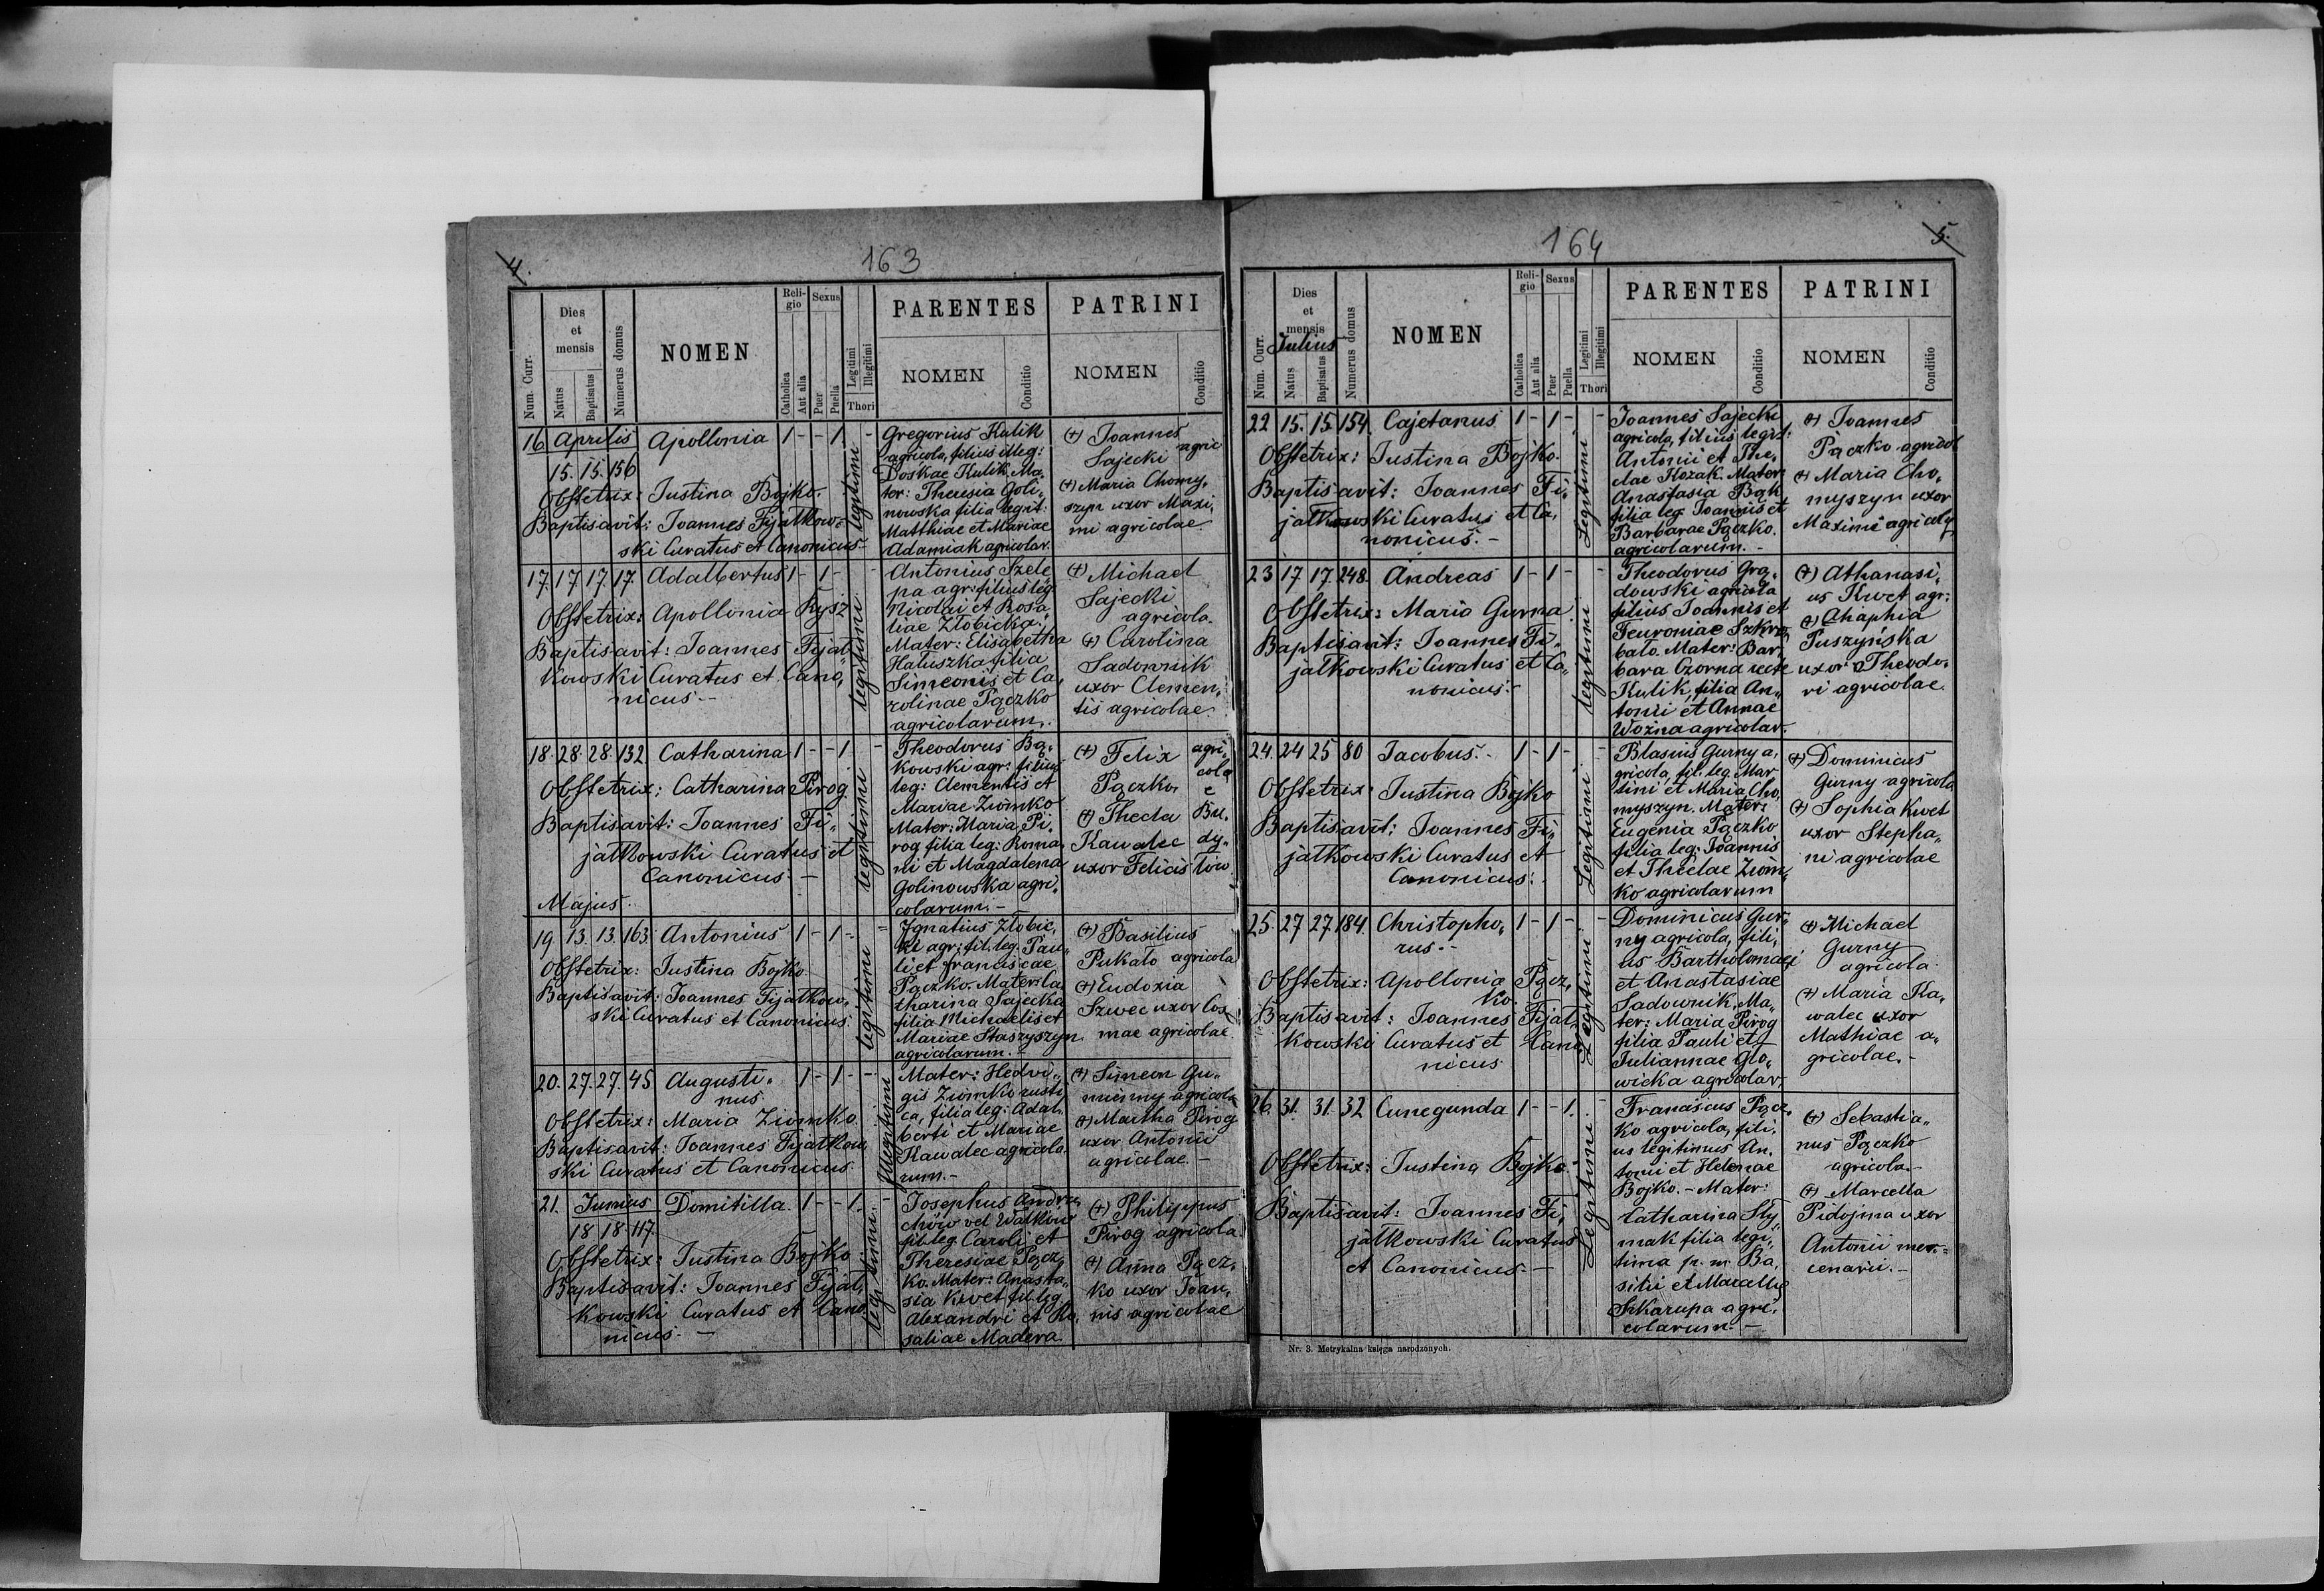 4.
163
Num. Curr.
Dies et mensis
Natus
Baptisatus
Numerus domus
NOMEN
Religio
Catholica
Aut alia
Sexus
Puer
Puella
Legitimi
Illegitimi
Thori
PARENTES
NOMEN
Conditio
PATRINI
NOMEN
Conditio
16. Aprilis Apollonia 1 - - 1. -
15. 15. 156
Obstetrix: Justina Bojko.
Baptisavit: Joannes Fijałkow-
ski Curatus et Canonicus.-
legitimi
Gregorius Kulik
agricola, filius illeg:
Doskae Kulik. Ma-
ter: Theresia Goli„
nowska filia legit:
Matthiae et Mariae
Adamiak agricolar.
(+) Joannes
Sajecki agric
(+) Maria Chomy„
szyn uxor Maxi„
mi agricolae
17. 17. 17. 17. Adalbertus 1 - 1 - -
Obstetrix: Apollonia Kysz
Baptisavit: Joannes Fijał„
kowski Curatus et Cano„
nicus.-
legitimi
Antonius Szele„
pa agr: filius leg:
Nicolai et Rosa„
liae Złobicka.
Mater: Elisabetha
Hałuszka filia
Simeonis et Ca„
rolinae Pączko
agricolarum.
(+) Michael
Sajecki
agricola.
(+) Carolina
Sadownik
uxor Clemen„
tis agricolae.
18. 28. 28. 132. Catharina 1 - - 1 -
Obstetrix: Catharina Pirog.
Baptisavit: Joannes Fi„
jałkowski Curatus et
Canonicus -
legitimi
Theodorus Bą„
kowski agr: filius
leg: Clementis et
Mariae Ziomko
Mater: Maria Pi„
rog filia leg: Roma„
ni et Magdalena
Golinowska agri„
colarum.-
(+) Felix agri„
cola
Pączko e
(+) Thecla Bu„
Kawalec dy„
uxor Felicis łów
Majus.
19. 13. 13. 163. Antonius 1 - 1 - =
Obstetrix: Justina Bojko
Baptisavit: Joannes Fijałkow„
ski Curatus et Canonicus.
legitimi
Ignatius Złobic„
ki agr: fil. leg. Pau„
li et Franciscae
Pączko. Mater: Ca„
tharina Sajecka
filia Michaelis et
Mariae Staszyszyn
agricolarum.-
(+) Basilius
Pukało agricola
(+) Eudoxia
Szwec uxor Cos„
mae agricolae
20. 27. 27. 45 Augusti„ 1 - 1 - -
nus
Obstetrix: Maria Ziomko.
Baptisavit: Joannes Fijałkow„
ski Curatus et Canonicus.
illegitimi
Mater: Hedvi„
gis Ziomko rusti„
ca, filia leg: Adal„
berti et Mariae
Kawalec agricola„
rum.-
(+) Simeon Gu„
mienny agricola
(+) Martha Pirog
uxor Antonii
agricolae.-
21. Junius Domitilla. 1 - - 1. -
18 18 117.
Obstetrix: Justina Bojko
Baptisavit: Joannes Fijał„
kowski Curatus et Cano„
nicus.-
legitimi
Josephus Andru„
chów vel Wałków
fil. leg. Caroli et
Theresiae Pącz„
ko. Mater: Anasta„
sia Kwet fil. leg.
Alexandri et Ro„
saliae Madera.
(+) Philippus
Pirog agricola.
(+) Anna Pącz„
ko uxor Joan„
nis agricolae
164
5.
Num. Curr.
Dies et mensis
Julius
Natus
Baptisatus
Numerus domus
NOMEN
Religio
Catholica
Aut alia
Sexus
Puer
Puella
Legitimi
Illegitimi
Thori
PARENTES
NOMEN
Conditio
PATRINI
NOMEN
Conditio
22 15. 15. 154. Cajetanus 1 - 1 - -
Obstetrix: Justina Bojko.
Baptisavit: Joannes Fi„
jałkowski Curatus et Ca„
nonicus.-
Legitimi
Joannes Sajecki
agricola, filius legit:
Antonii et The„
clae Kozak. Mater
Anastasia Bąk
filia leg. Joannis et
Barbarae Pączko.
agricolarum.-
(+) Joannes
Pączko agricol
(+) Maria Cho„
myszyn uxor
Maximi agricolae
23 17. 17. 248. Andreas 1 - 1 - -
Obstetrix: Maria Gurna
Baptisavit: Joannes Fi„
jałkowski Curatus et Ca„
nonicus.-
legitimi
Theodorus Gra„
dowski agricola
filius Joannis et
Feuroniae
bało. Mater: Bar„
bara Czorna recte
Kulik, filia An„
tonii et Annae
Wożna agricolar.
(+) Athanasi„
us Kwet agr:
(+) Ahaphia
Puszyńska
uxor Theodo„
ri agricolae.
24. 24 25 80 Jacobus.- 1 - 1 - -
Obstetrix: Justina Bojko
Baptisavit: Joannes Fi„
jałkowski Curatus et
Canonicus.
Legitimi
Blasius Gurny a„
gricola, fil. leg. Mar
tini et Maria Cho„
myszyn. Mater:
Eugenia Pączko
filia leg: Joannis
et Theclae Ziom„
ko agricolarum
(+) Dominicus
Gurny agricola
(+) Sophia Kwet
uxor Stepha„
ni agricolae
25. 27 27. 184. Christopho„ 1 - 1 - -
rus.-
Obstetrix: Apollonia Pącz„
ko.
Baptisavit: Joannes Fijał„
kowski Curatus et Cano„
nicus
Legitimi.
Dominicus Gur„
ny agricola, fili„
us Bartholomaei
et Anastasiae
Sadownik. Ma„
ter: Maria Pirog
filia Pauli et
Juliannae Gło„
wicka agricolar.
(+) Michael
Gurny
agricola.
(+) Maria Ka„
walec uxor
Mathiae a„
gricolae.-
26. 31. 31. 32 Cunegunda 1 - - 1. -
Obstetrix: Justina Bojko.-
Baptisavit: Joannes Fi„
jałkowski Curatus
et Canonicus.-
Legitimi
Franciscus Pącz„
ko agricola, fili„
us legitimus An„
tonii et Helenae
Bojko.- Mater:
Catharina Sły„
mak filia legi„
tima p. m. Ba„
silii et Marcellae
Szkarupa agri„
colarum.-
(+) Sebastia„
nus Pączko
agricola.-
(+) Marcella
Pidojma uxor
Antonii mer„
cenarii.-
Nr. 3. Metrykalna księga narodzonych.